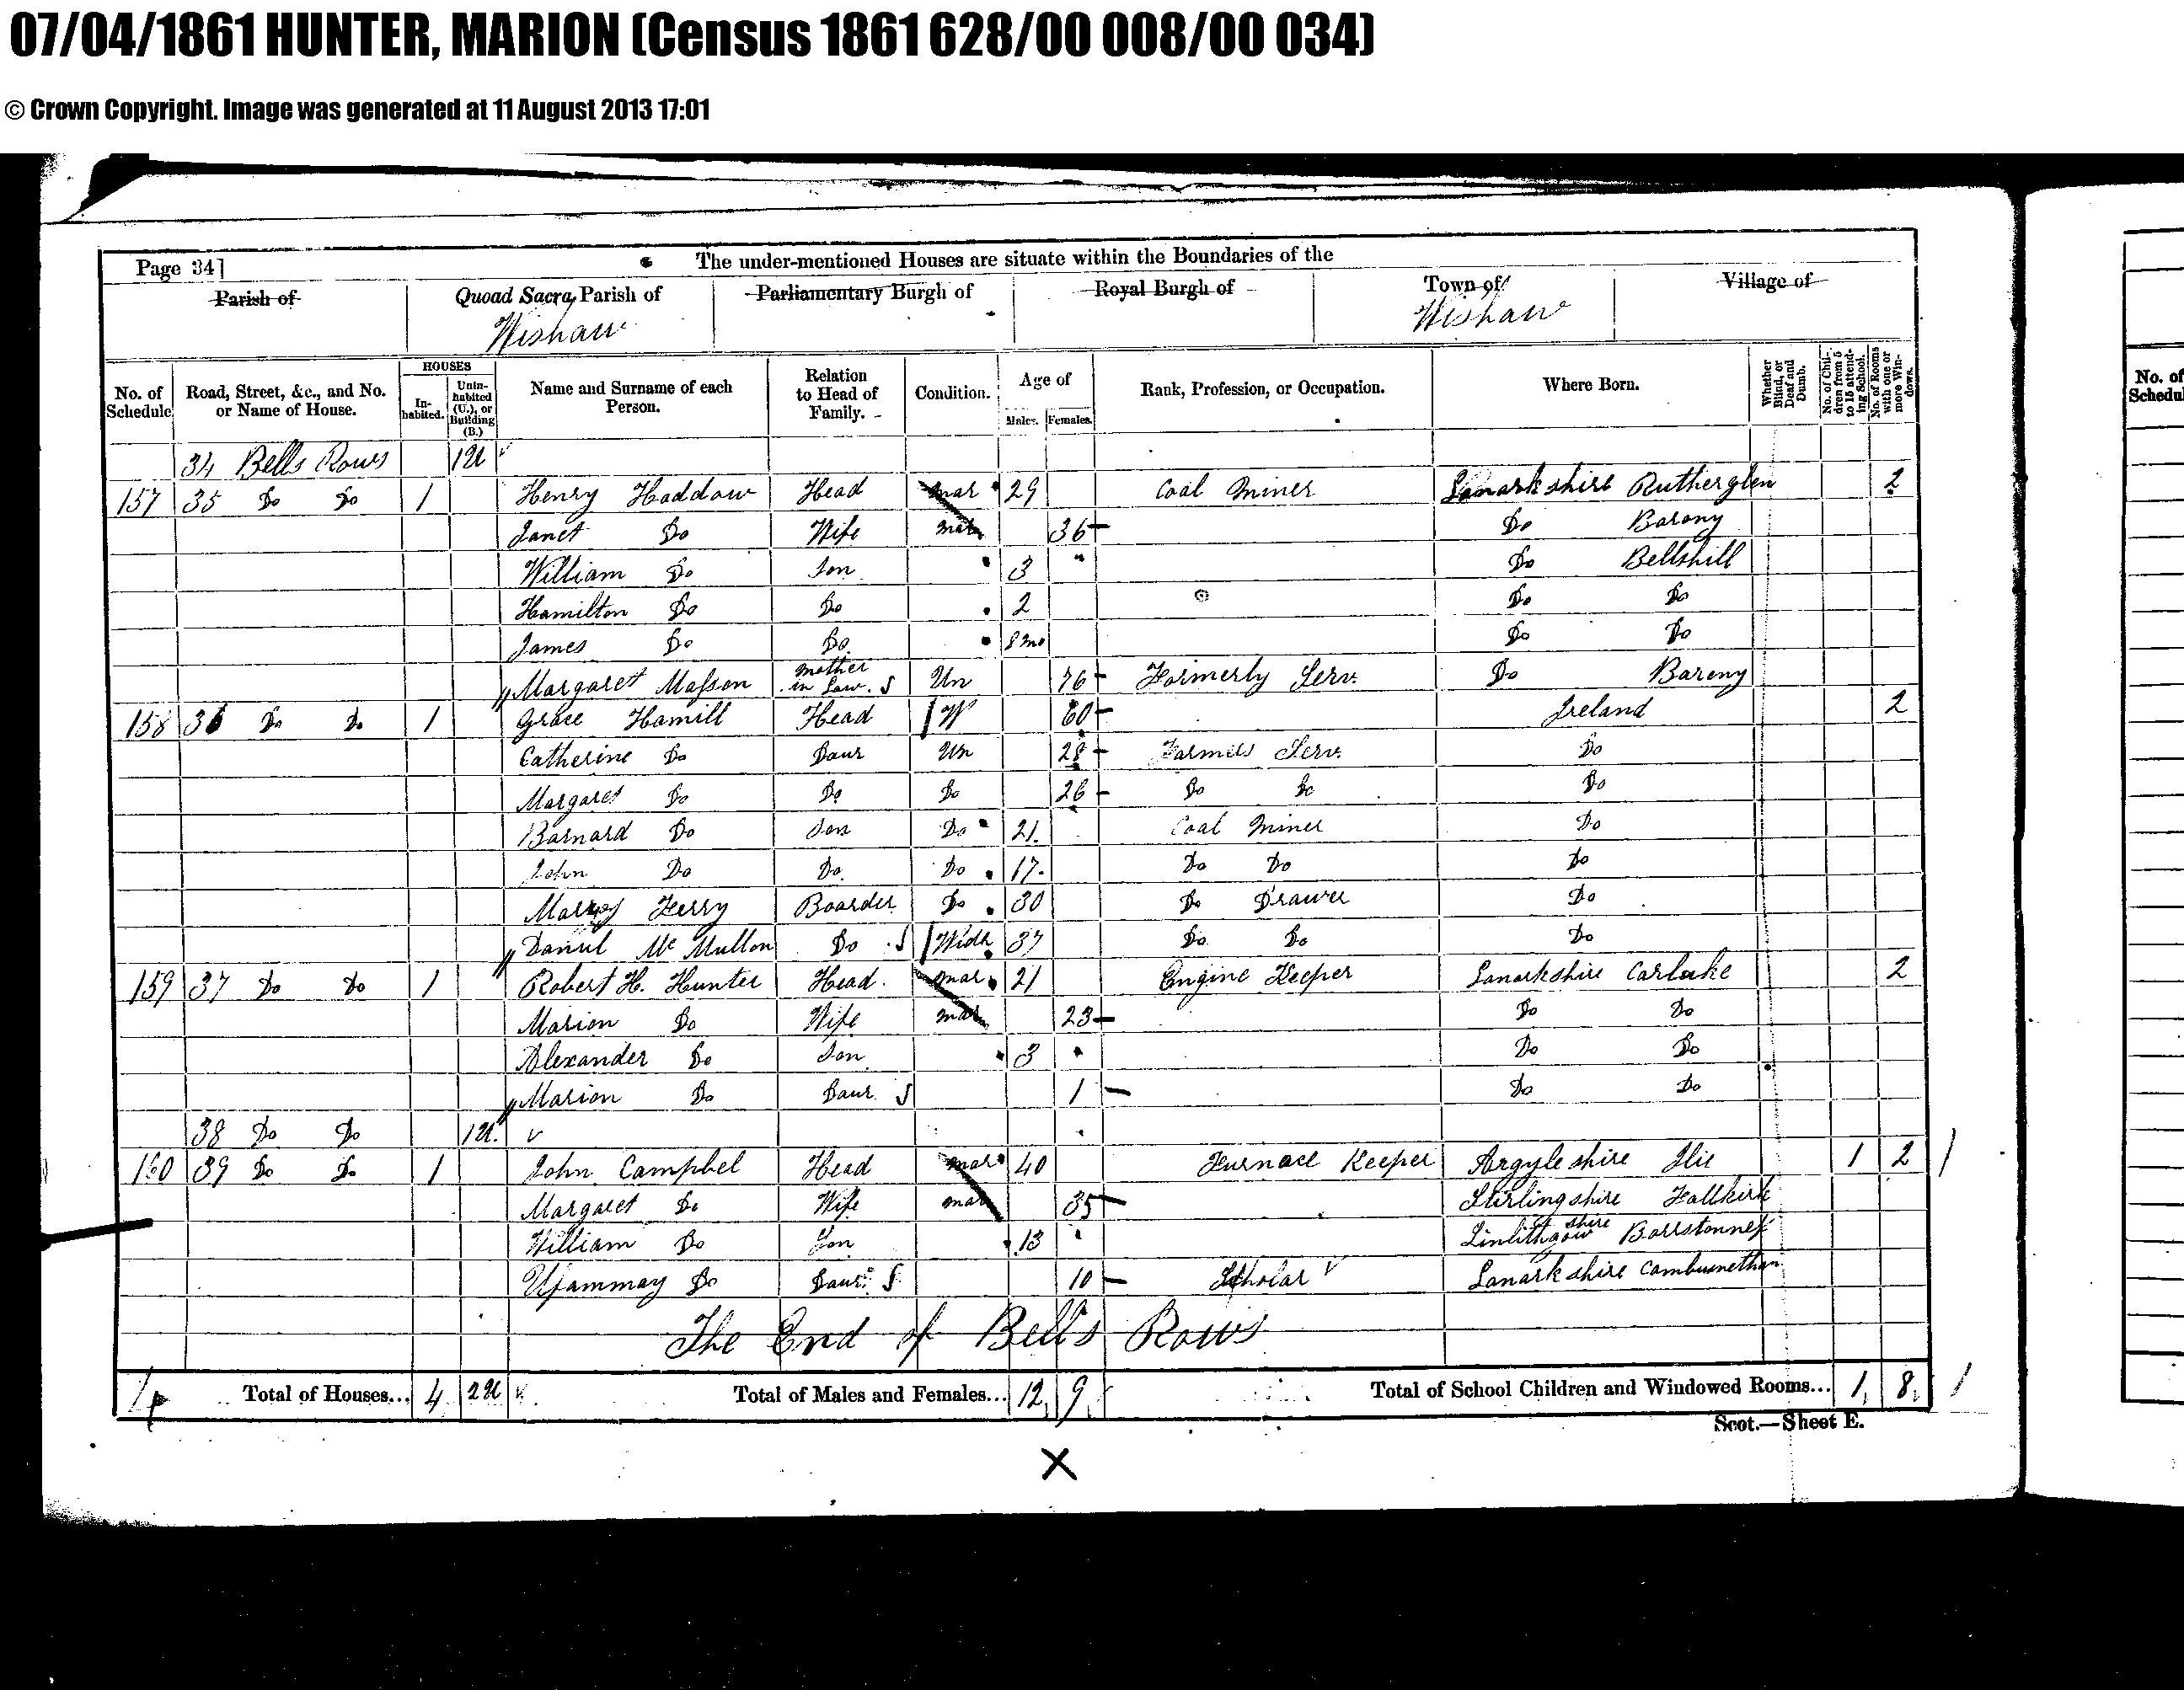 07/04/1861 HUNTER, MARION (Census 1861 628/00 008/00 034)
© Crown Copyright. Image was generated at 11 August 2013 17:01
Page 34] The under-mentioned Houses are situate within the Boundaries of the
Parish of Quoad Sacra Parish of Parliamentary Burgh of Royal Burgh of Town of Village of
Wishaw Wishaw
No. of Schedule Road, Street, &c., and No. or Name of House. HOUSES Inhabited. Uninhabited (U.), or Building (B.) Name and Surname of each Person. Relation to Head of Family. Condition. Age of Males. Females. Rank, Profession, or Occupation. Where Born. Whether Blind, or Deaf and Dumb. No. of Children from 5 to 15 attending School. No. of Rooms with one or more Windows.
34 Bells Rows 1U
157 35 Do Do 1 Henry Haddow Head Mar 29 Coal Miner Lanarkshire Rutherglen 2
Janet Do Wife Mar 36 Do Barony
William Do Son 3 Do Bellshill
Hamilton Do Do 2 Do Do
James Do Do 8 mo Do Do
Margaret Masson Mother in Law Un 76 Formerly Serv. Do Barony
158 36 Do Do 1 Grace Hamill Head W 60 Ireland 2
Catherine Do Daur Un 28 Farmers Serv. Do
Margaret Do Do Do 26 Do Do Do
Barnard Do Son Do 21 Coal Miner Do
John Do Do Do 17 Do Do Do
Ferry Boarder Do 30 Do Drawer Do
Daniel Mc Mullon Do Widr 37 Do Do Do
159 37 Do Do 1 Robert H. Hunter Head Mar 21 Engine Keeper Lanarkshire Carluke 2
Marion Do Wife Mar 23 Do Do
Alexander Do Son 3 Do Do
Marion Do Daur 1 Do Do
38 Do Do 1U.
160 39 Do Do 1 John Campbel Head Mar 40 Furnace Keeper Argyleshire 1 2 1
Margaret Do Wife Mar 35 Stirlingshire Falkirk
William Do Son 13 Linlithgow shire
Do Daur 10 Scholar Lanarkshire Cambusnethan
The End of Bell's Rows
Total of Houses... 4 2U Total of Males and Females... 12 9 Total of School Children and Windowed Rooms... 1 8 1
Scot.—Sheet E.
X
No. of Schedul